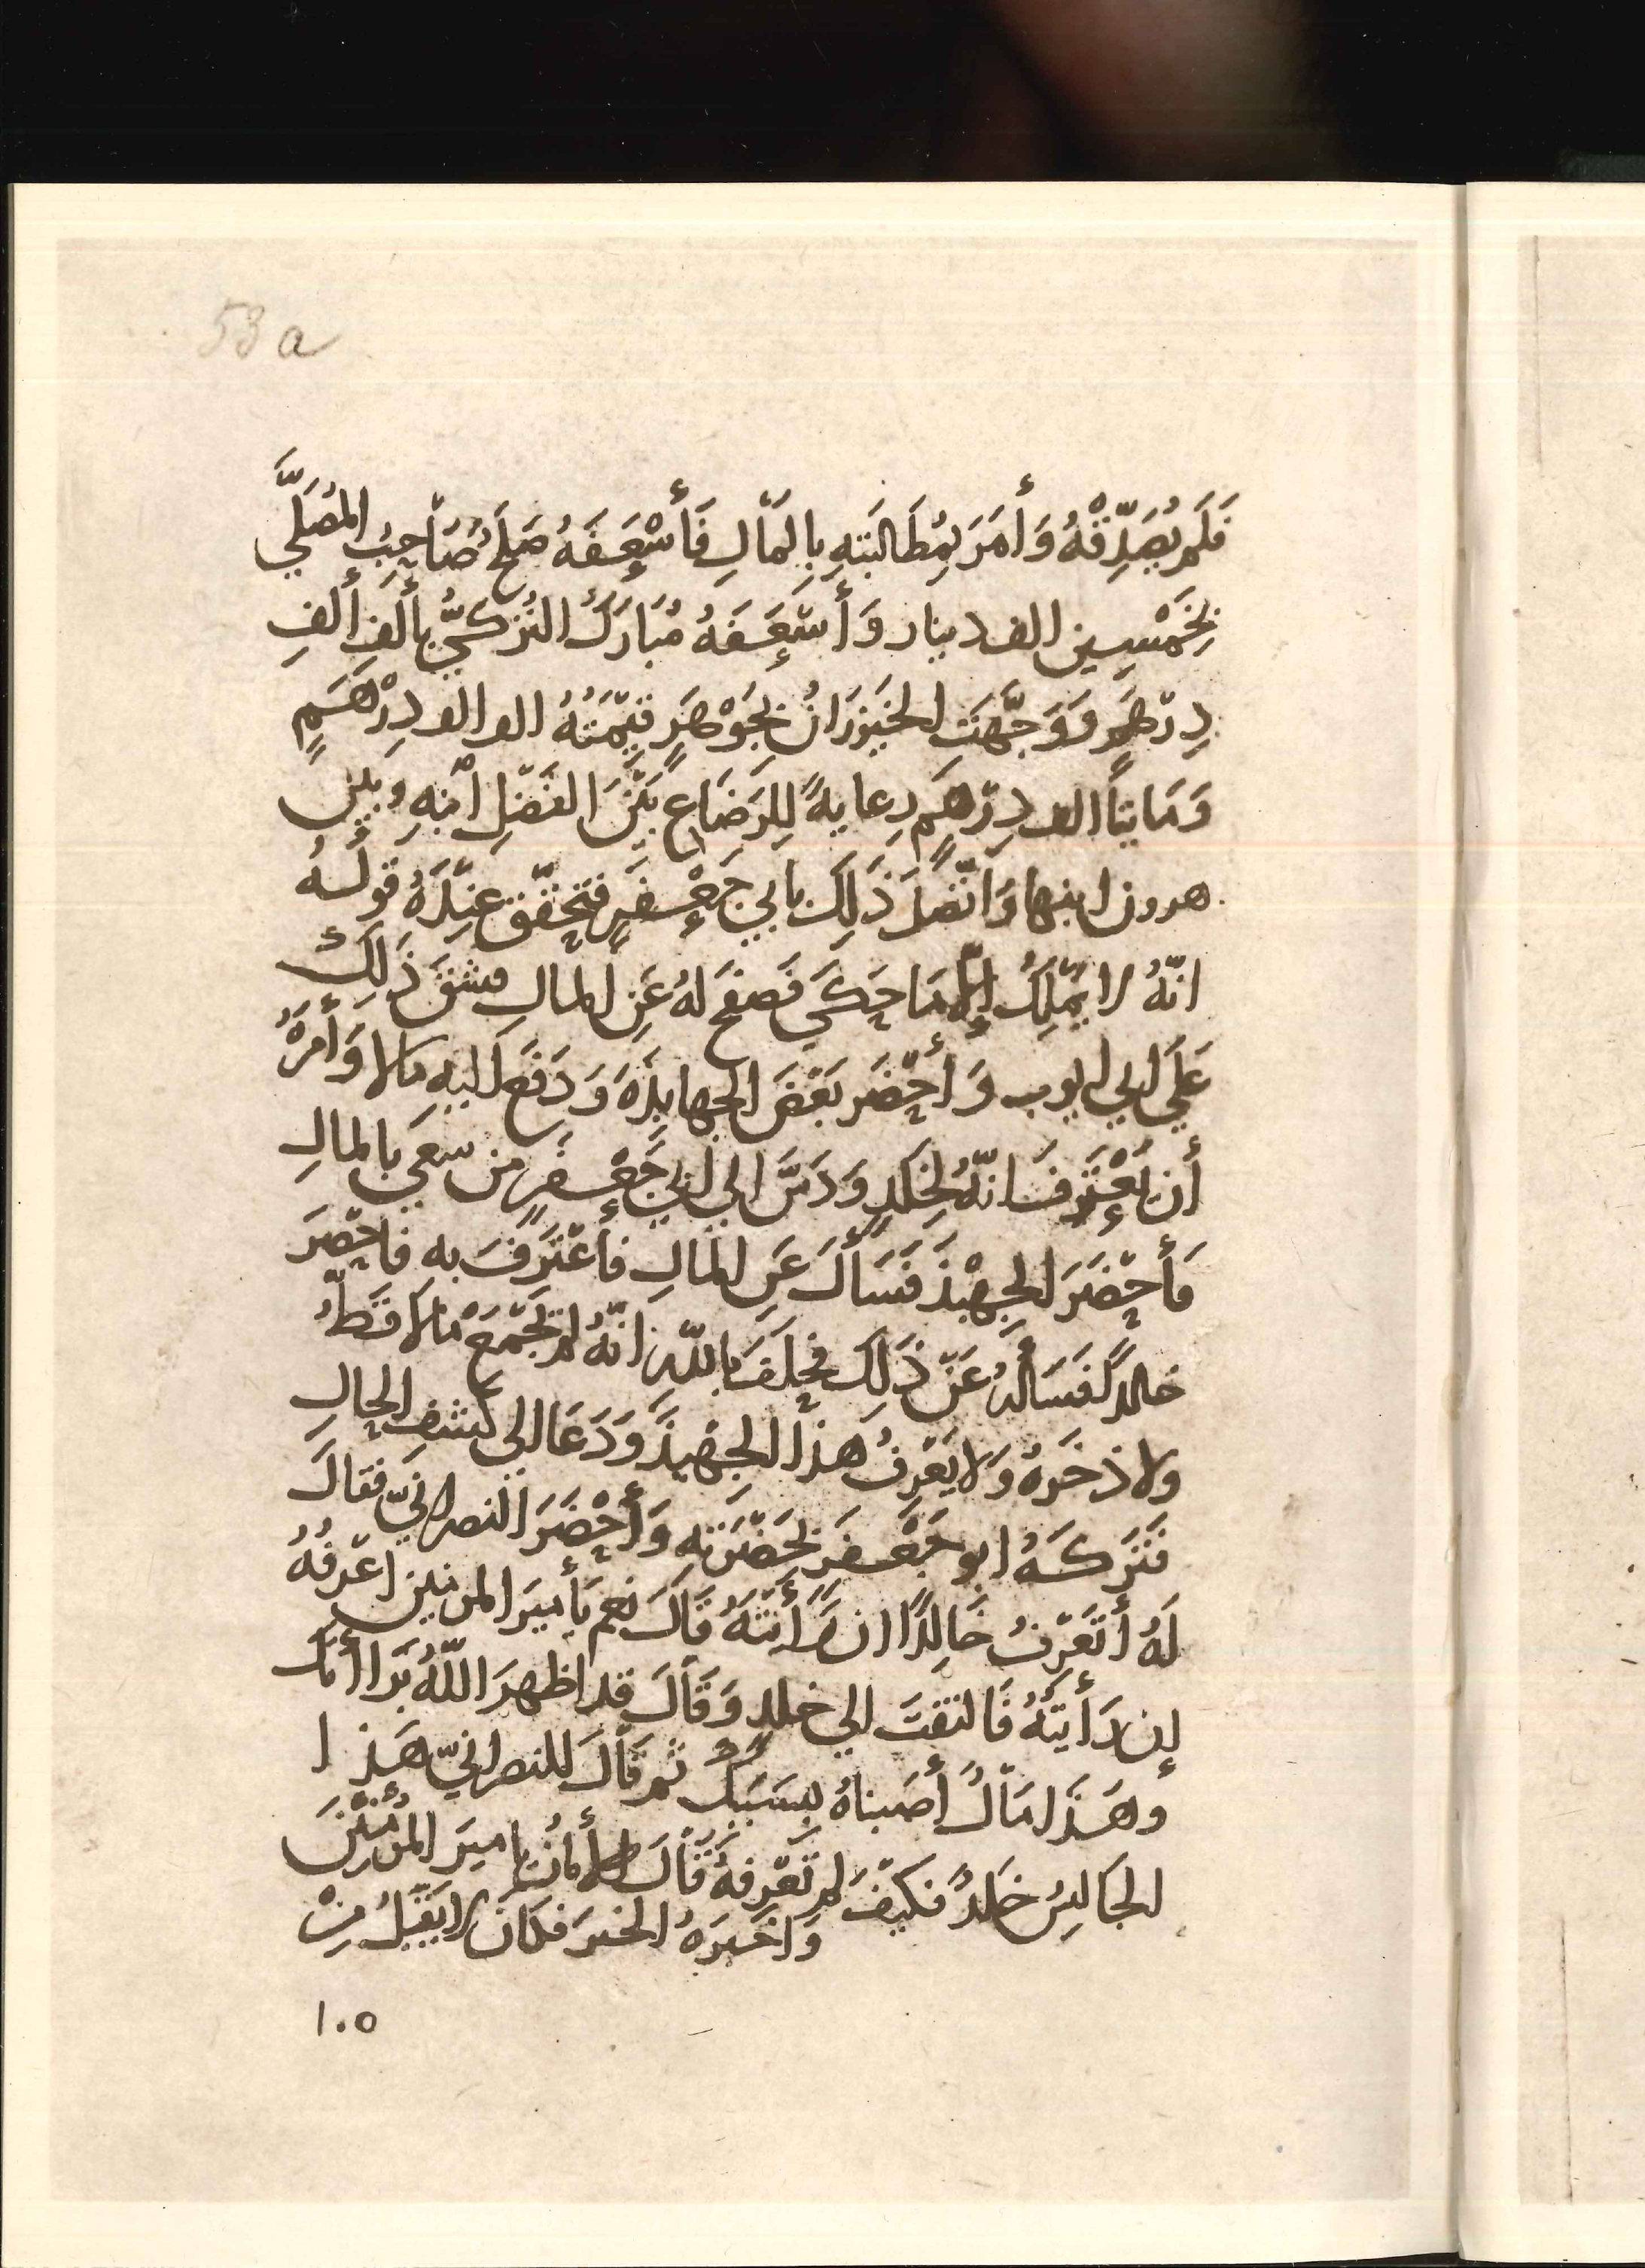 53 a
فَلَم يُصَدِّقْهُ وَأَمَرَ بِمُطَالبَتِهِ بِالمَالِ فَأَسْعَفَهُ صَلحُ صَاحِبُ المُصَلَّي
بِخَمْسِين الف دينار وَأَسْعَفَهُ مُبَارَكُ التُركيُّ بأَلفِ أَلفِ
دِرْهَمٍ وَوَجَّهَتِ الخَيزرَانُ بِجَوْهَرٍ قيمَتُهُ الف الف دِرْهَمٍ
وَمَايتَا الف دِرْهَمٍ رِعايةً لِلرَضَاعِ بَيْنَ الفَضْلِ ابنِهِ وبَيْن
هرون ابنها وَاتّصَلَ ذَلِكَ بابي جَعْفَرٍ فتحقّق عِنْدَهُ قولُهُ
انّهُ لا يَمْلِكُ إلّا مَا حَكَي فَصفَحَ لهُ عَنِ المالِ فشقَّ ذَلِكَ
عَلَي ابي ايوب وَأَحْضَر بَعْضَ الجهابِذَهِ وَدَفَعَ اليه مالا وَأَمَرَهُ
أن يَعْتَرِفَ انّهُ لِخَلَدٍ وَدَسَّ الي ابي جَعْفَرٍ من سعي بالمالِ
فَأَحْضَرَ الجِهْبذَ فَسَأَلَ عَنِ المَالِ فاعْتَرَفَ به فاحْضَرَ
خالدًا فَسَأَلَهُ عَنْ ذَلِكَ فحلَفَ باللّهِ انّهُ لم يَجْمَعْ مالا قَطُّ
ولا ذخَرهُ وَلا يَعْرفُ هذا الجِهْبذَ وَدَعَا الي كشفِ الحالِ
فَتَرَكَهُ ابو جَعْفَرٍ بِحَضْرَتِهِ وَأَحْضَرَ النصرانيّ فقالَ
لهُ أَتَعْرِفُ خَالِدًا ان رَأَيْتَهُ قَالَ نعم يَأَميرَ المومنين اعْرفُهُ
إن رَأَيتُهُ فَالتفتَ الي خلدٍ وَقَالَ قد اظهرَ اللّهُ بَرَاأتَكَ
وهَذَا مَالُ أَصَبناهُ بِسَبَبِكَ ثم قَالَ للنصرانيّ هَذا
الجَالِسُ خَلدُ فكَيفَ لم تَعْرِفهُ قَالَ الأَمانُ يا اميرَ المُؤْمِنِينَ
وَاخبَرَهُ الخبرَ فكان لا يَقْبَلُ مِنْ
١٠٥